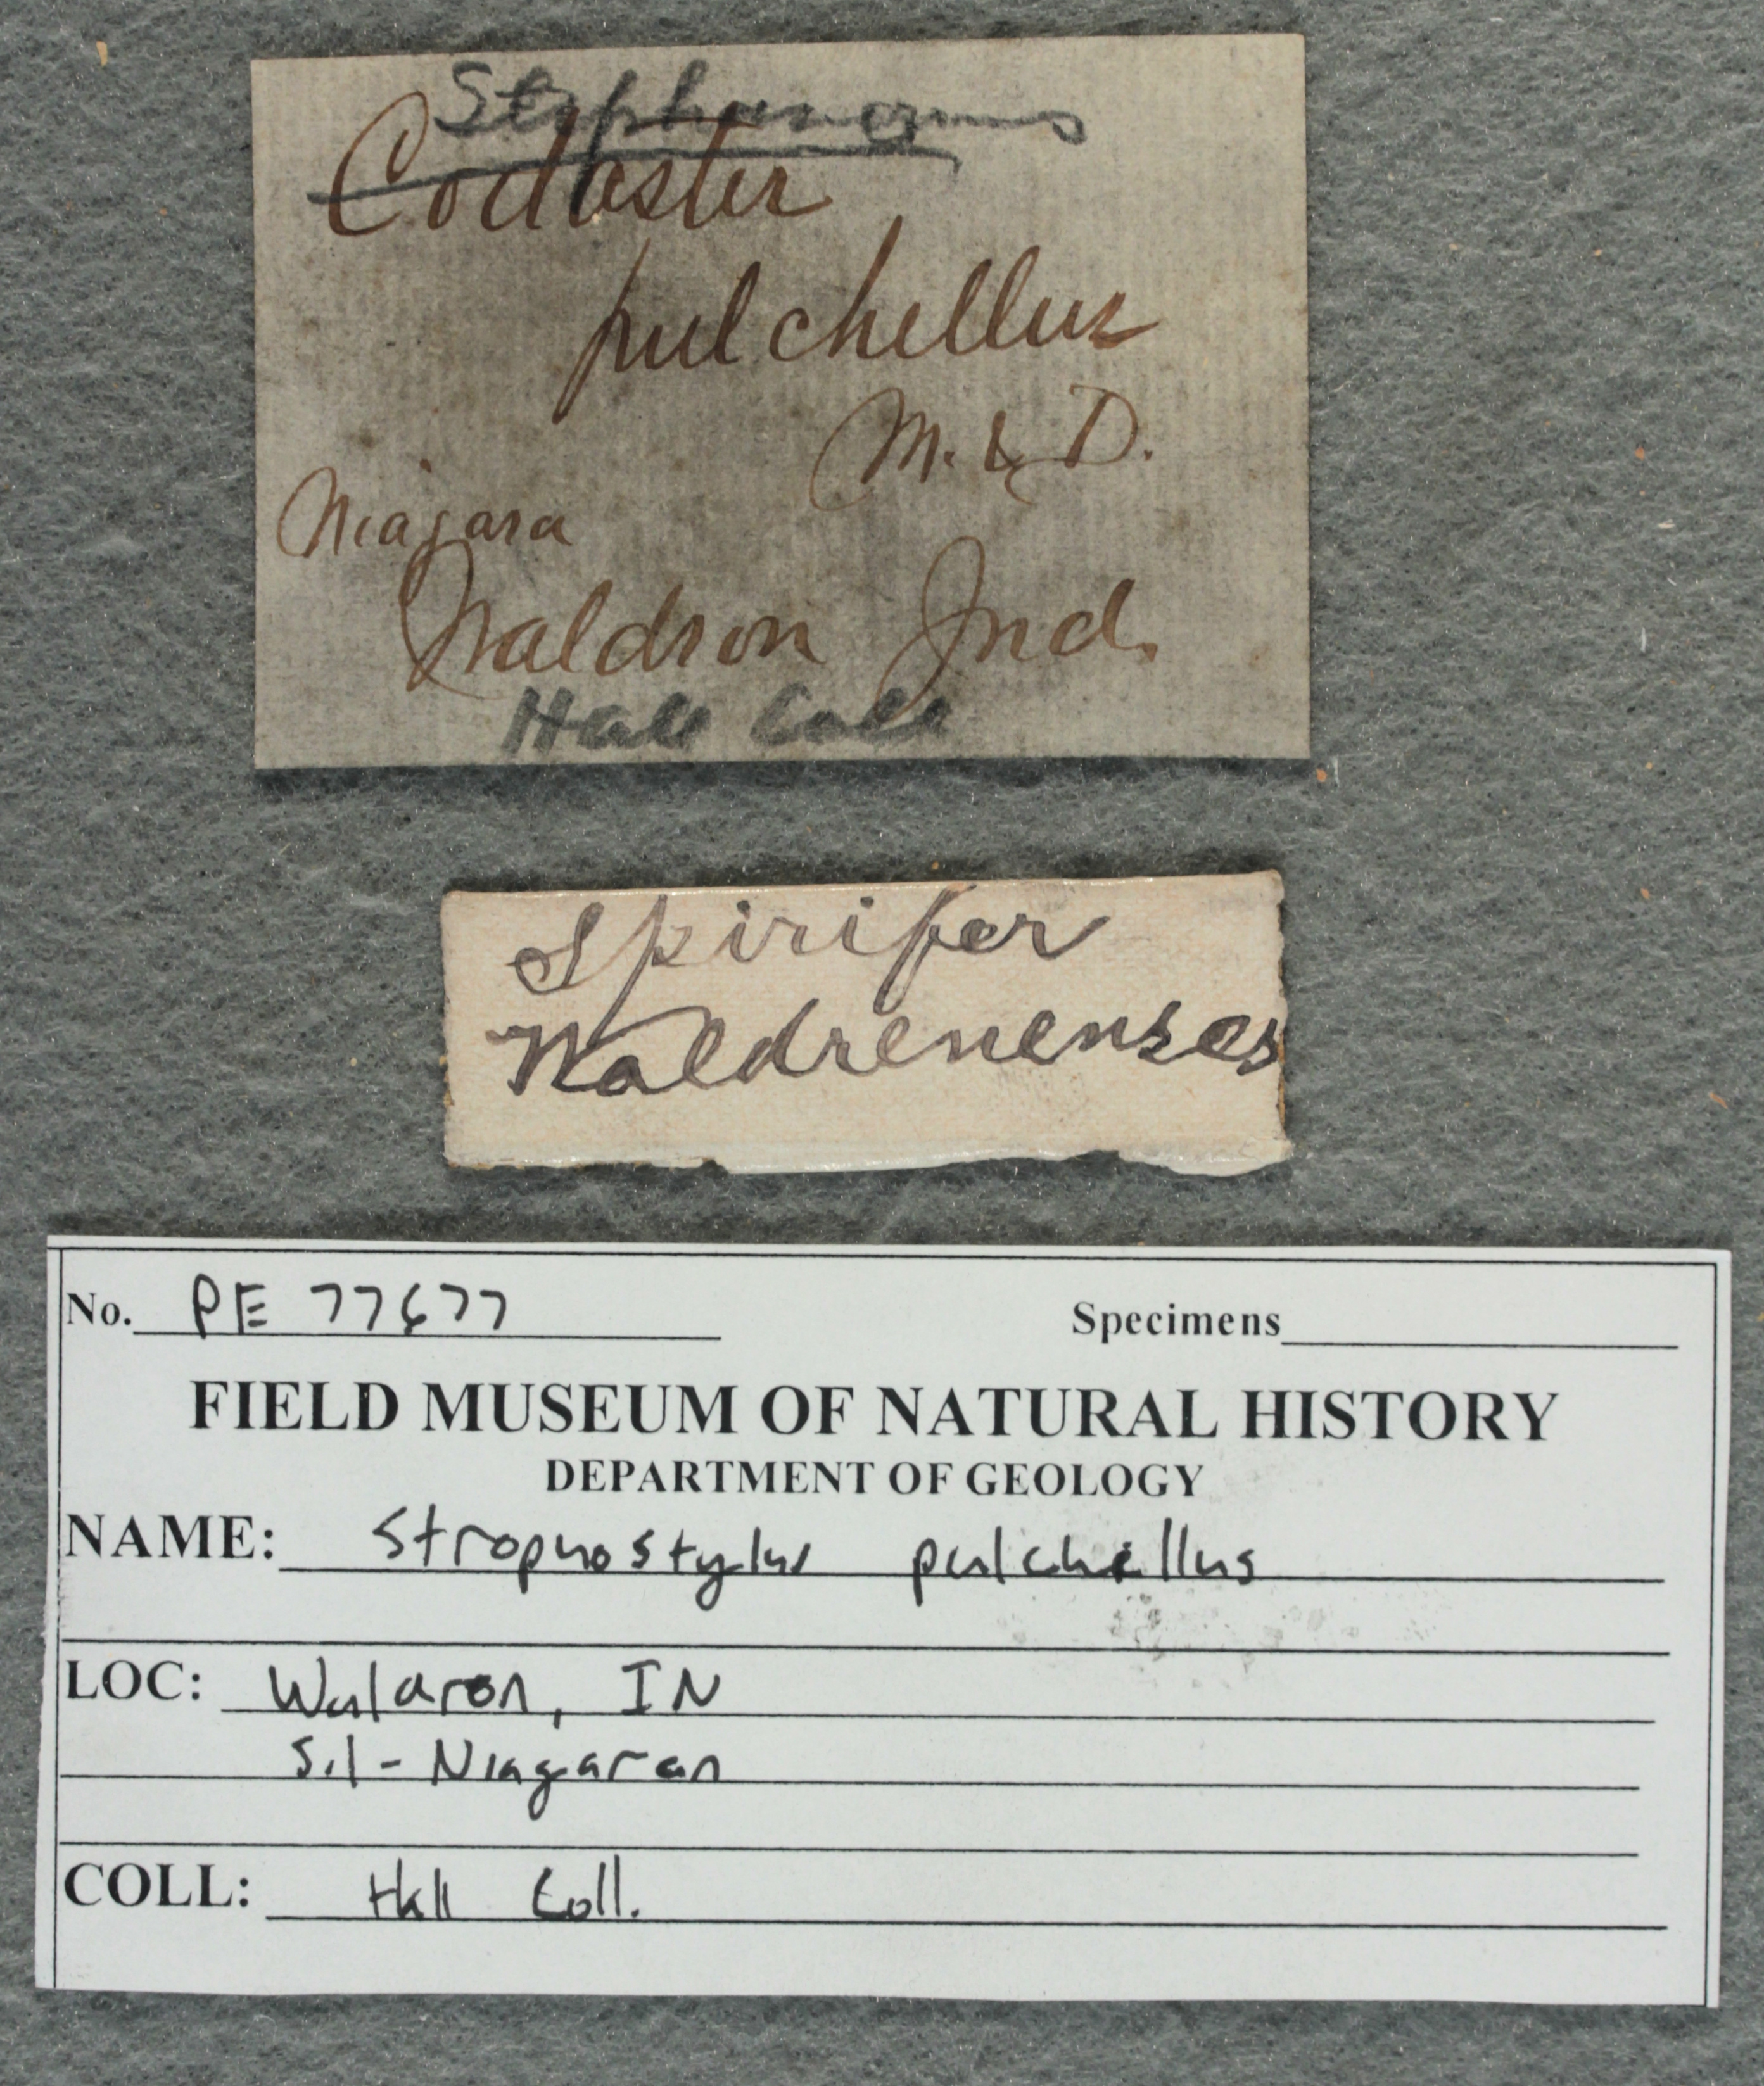 Stephanocrinus
Codaster
pulchellus
M. & D.
Niagara
Waldron Ind.
Hall Coll
Spirifer
Waldrenenses
No. PE 77677 Specimens
FIELD MUSEUM OF NATURAL HISTORY
DEPARTMENT OF GEOLOGY
NAME: Strophostylus pulchellus
LOC: Waldron, IN
Sil - Niagaran
COLL: Hall Coll.